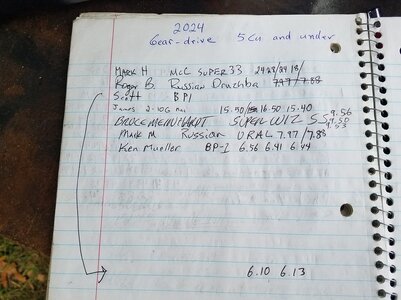 2024
Gear-drive 5 Cu and under
Mark H McC Super 33 24.28/24.18/
Roger B. Russian Druzhba 7.97/7.88
Scott BP1
James 2-10G 15.50 16.50 15.40
BRUCE MEINHARDT SUPER WIZ 55 9.56
9.50
9.53
Mark M Russian URAL 7.97/7.88
Ken Mueller BP-1 6.56 6.41 6.44
6.10 6.13